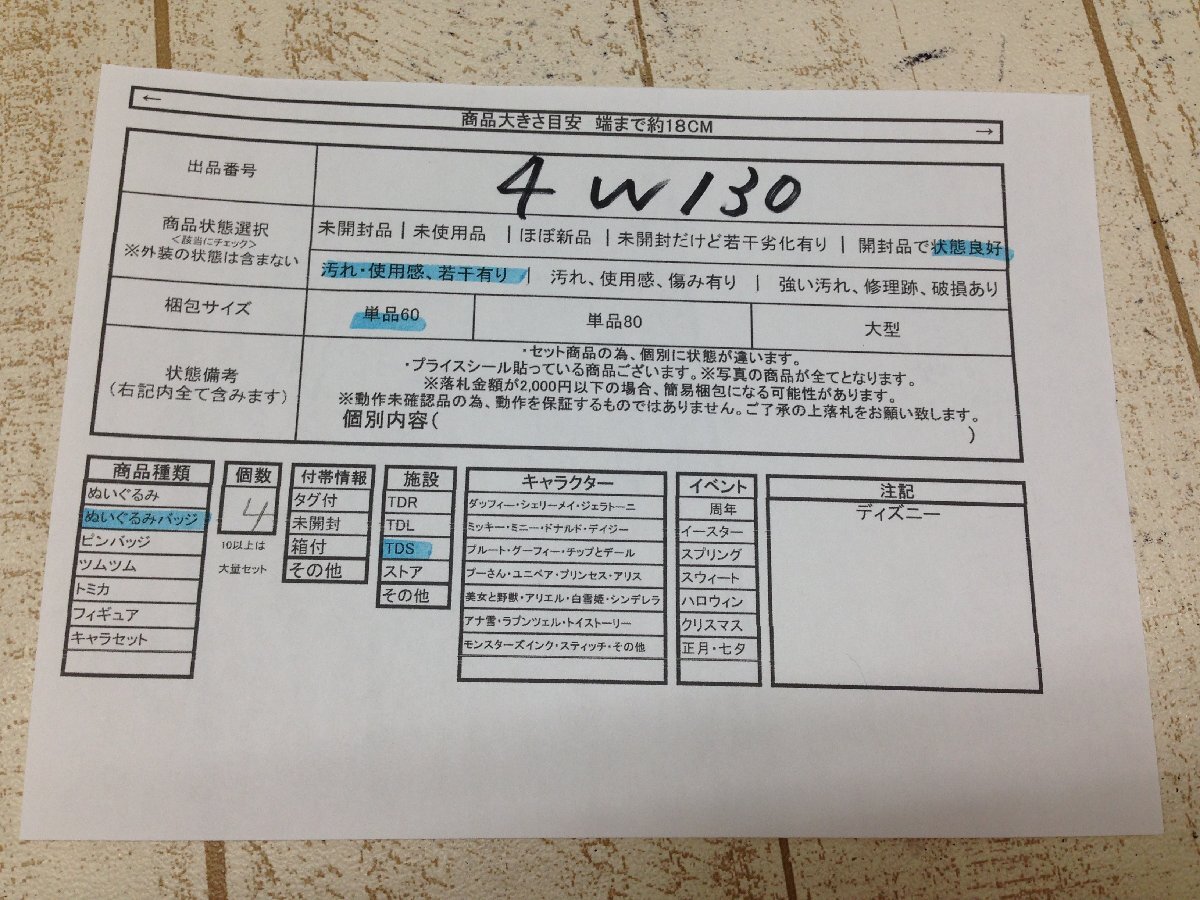 ← 商品大きさ目安 端まで約18CM →
出品番号 4W130
商品状態選択
<該当にチェック>
※外装の状態は含まない
未開封品 | 未使用品 | ほぼ新品 | 未開封だけど若干劣化有り | 開封品で状態良好
汚れ・使用感、若干有り | 汚れ、使用感、傷み有り | 強い汚れ、修理跡、破損あり
梱包サイズ 単品60 単品80 大型
状態備考
(右記内全て含みます)
・セット商品の為、個別に状態が違います。
・プライスシール貼っている商品ございます。※写真の商品が全てとなります。
※落札金額が2,000円以下の場合、簡易梱包になる可能性があります。
※動作未確認品の為、動作を保証するものではありません。ご了承の上落札をお願い致します。
個別内容( )
商品種類
ぬいぐるみ
ぬいぐるみバッジ
ピンバッジ
ツムツム
トミカ
フィギュア
キャラセット
個数
4
10以上は
大量セット
付帯情報
タグ付
未開封
箱付
その他
施設
TDR
TDL
TDS
ストア
その他
キャラクター
ダッフィー・シェリーメイ・ジェラトーニ
ミッキー・ミニー・ドナルド・デイジー
プルート・グーフィー・チップとデール
プーさん・ユニベア・プリンセス・アリス
美女と野獣・アリエル・白雪姫・シンデレラ
アナ雪・ラプンツェル・トイストーリー
モンスターズインク・スティッチ・その他
イベント
周年
イースター
スプリング
スウィート
ハロウィン
クリスマス
正月・七夕
注記
ディズニー